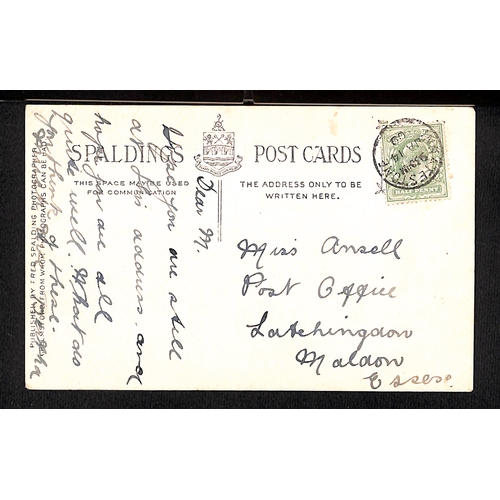 SPALDINGS POST CARDS
THIS SPACE MAY BE USED
FOR COMMUNICATION
THE ADDRESS ONLY TO BE
WRITTEN HERE.
PUBLISHED BY FRED SPALDING PHOTOGRAPHER
FROM WHOM PHOTOGRAPHS CAN BE HAD
HALF PENNY
Dear M.
Hope you are still
at this address. and
hope you are all
quite well. What do
you think of these.
Miss Ansell
Post Office
Latchingdon
Maldon
Essex.